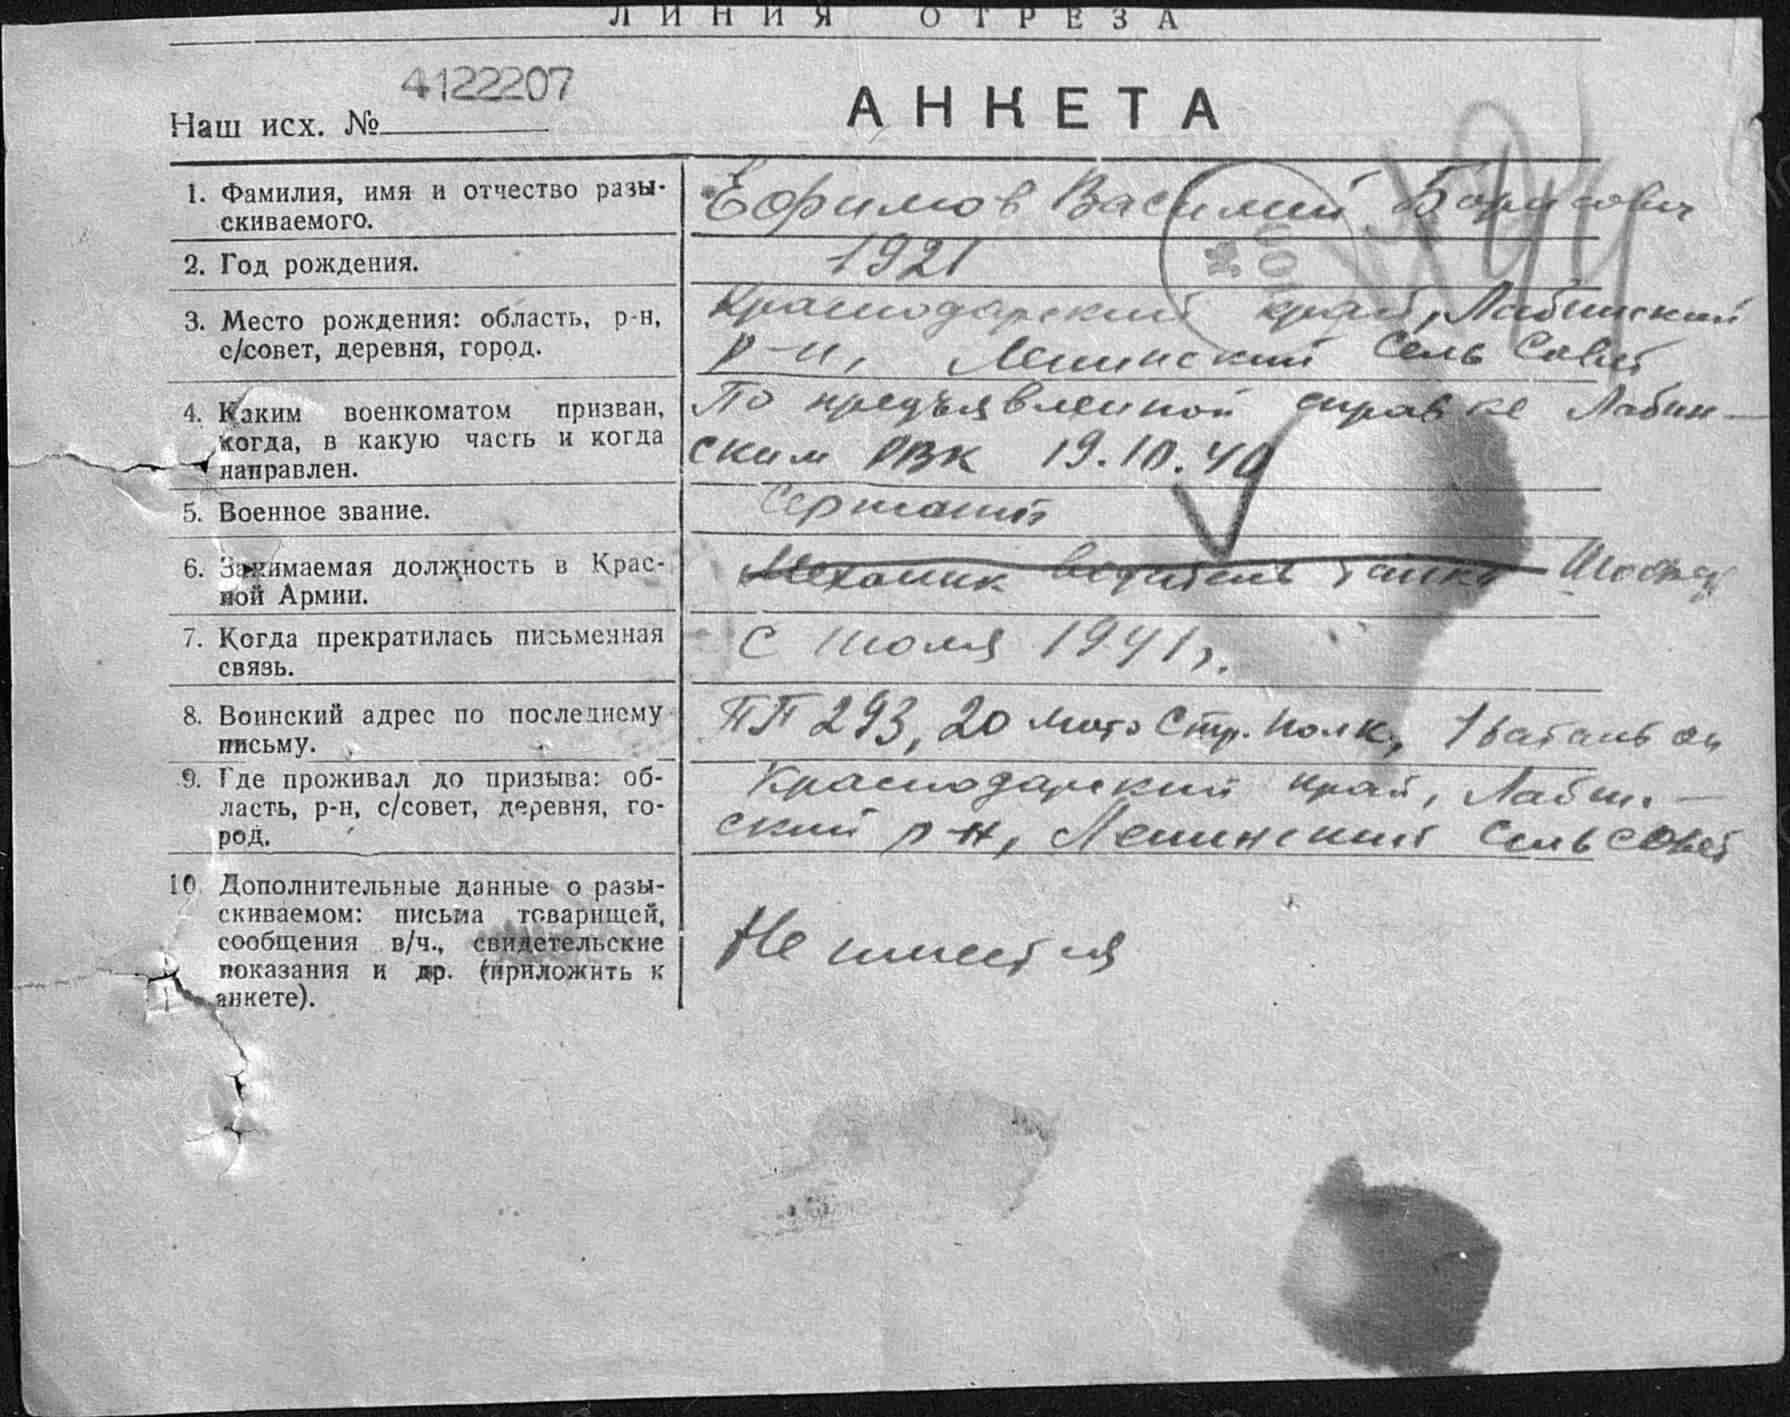 ЛИНИЯ ОТРЕЗА
4122207
Наш исх. №
АНКЕТА
1. Фамилия, имя и отчество разы-
скиваемого.
Ефимов Василий Борисович
2. Год рождения.
1921
3. Место рождения: область, р-н,
с/совет, деревня, город.
Краснодарский край, Лабинский
р-н, Ленинский сель совет
4. Каким военкоматом призван,
когда, в какую часть и когда
направлен.
По предъявленной справке Лабин-
ским РВК 19.10.40
5. Военное звание.
Сержант
6. Занимаемая должность в Крас-
ной Армии.
Механик водитель танка
7. Когда прекратилась письменная
связь.
С июля 1941 г.
8. Воинский адрес по последнему
письму.
ПП 293, 20 мото Стр. полк, 1 баталь он
9. Где проживал до призыва: об-
ласть, р-н, с/совет, деревня, го-
род.
Краснодарский край, Лабин-
ский р-н, Ленинский сельсовет
10. Дополнительные данные о разы-
скиваемом: письма товарищей,
сообщения в/ч., свидетельские
показания и др. (приложить к
анкете).
Не имеется